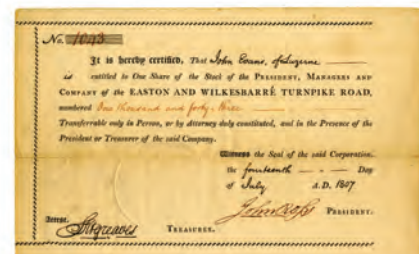 No. 1043
It is hereby certified, That John Evans, of Luzerne
is entitled to One Share of the Stock of the PRESIDENT, MANAGERS AND
COMPANY of the EASTON AND WILKESBARRÉ TURNPIKE ROAD,
numbered One thousand and forty-three
Transferrable only in Person, or by Attorney duly constituted, and in the Presence of the
President or Treasurer of the said Company.
Witness the Seal of the said Corporation
the fourteenth Day
of July A.D. 1807
John Ross PRESIDENT.
Attest.
Sitgreaves TREASURER.